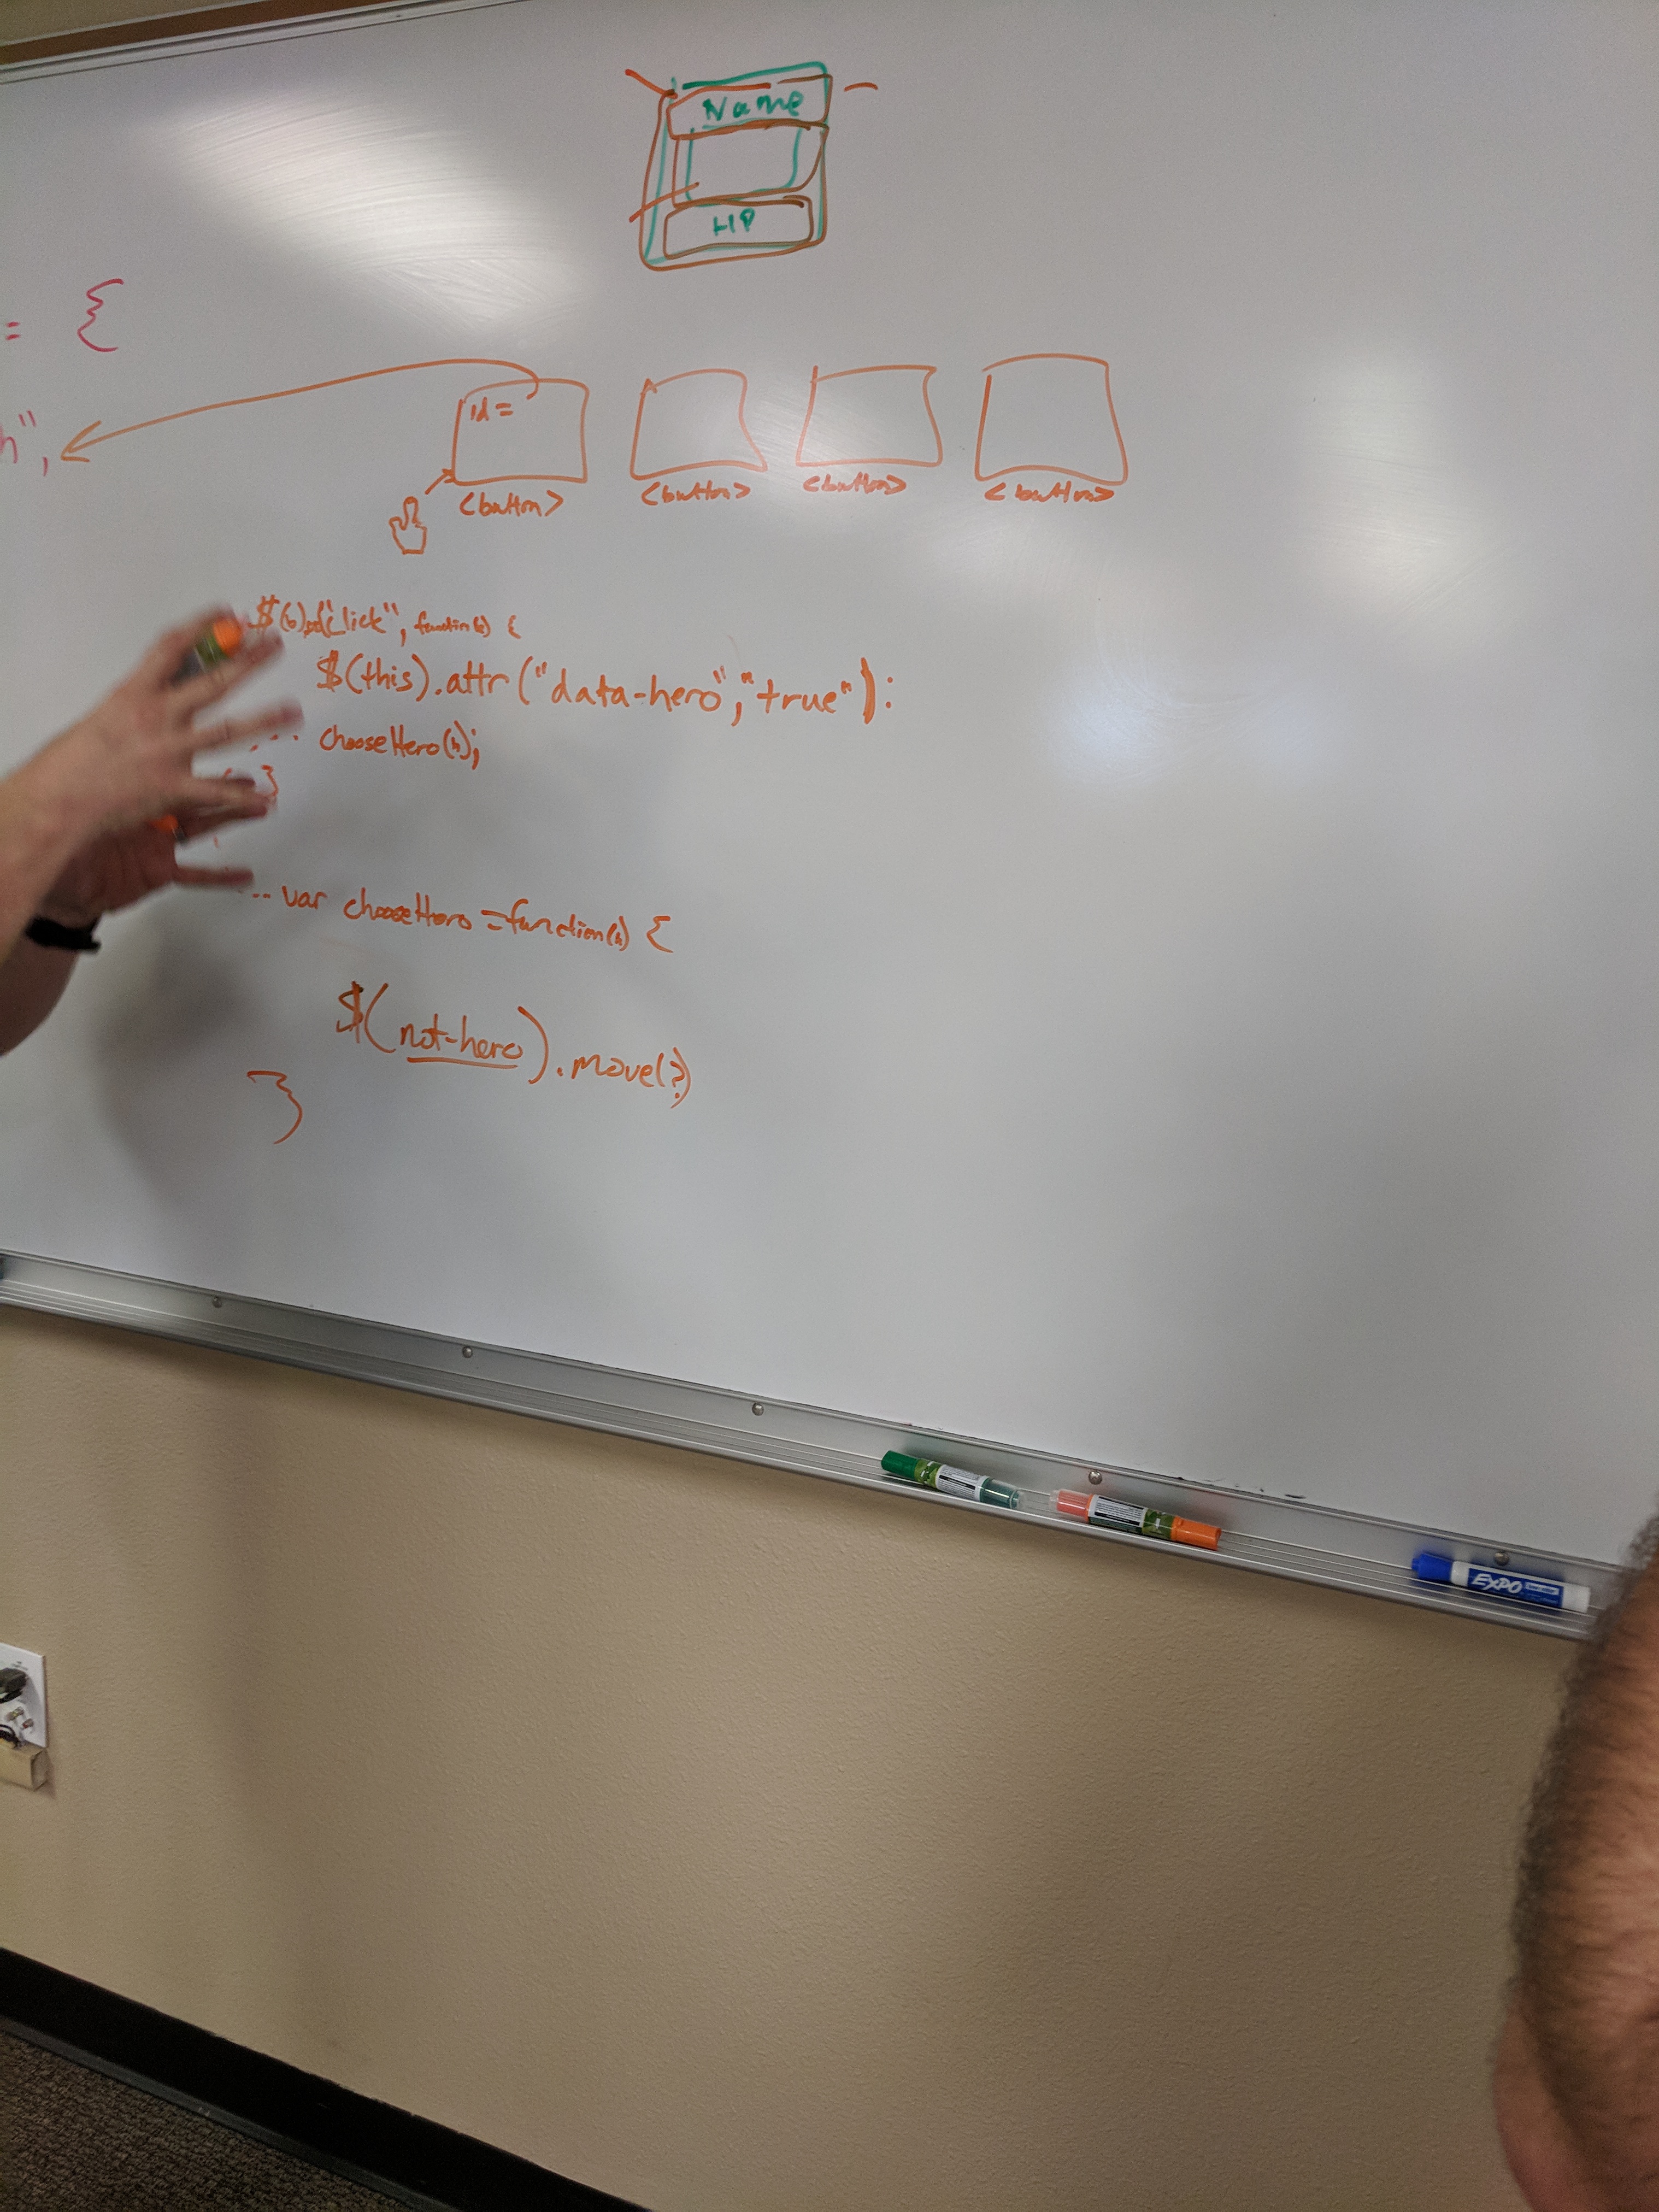 Name
HP
= {
h",
id =
<button> <button> <button> <button>
$(b).on("click", function(h) {
$(this).attr("data-hero","true"):
chooseHero(h);
}
... var chooseHero = function(h) {
$(not-hero).move(?)
}
EXPO